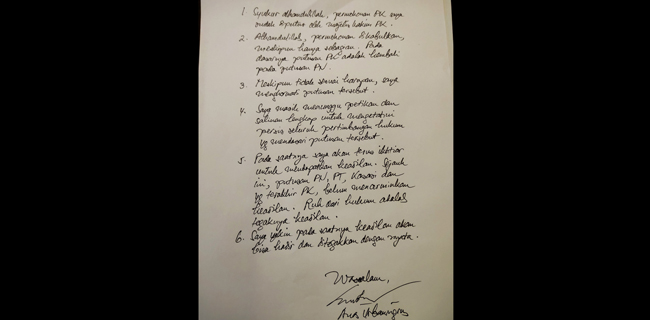 1. Syukur alhamdulillah, permohonan PK saya
sudah diputus oleh majelis hakim PK.
2. Alhamdulillah, permohonan dikabulkan,
meskipun hanya sebagian. Pada
dasarnya putusan PK adalah kembali
pada putusan PN.
3. Meskipun tidak sesuai harapan, saya
menghormati putusan tersebut.
4. Saya masih menunggu petikan dan
salinan lengkap untuk mengetahui
persis seluruh pertimbangan hukum
yg mendasari putusan tersebut.
5. Pada saatnya saya akan terus ikhtiar
untuk mendapatkan keadilan. Sejauh
ini, putusan PN, PT, Kasasi dan
yg terakhir PK, belum mencerminkan
keadilan. Ruh dari hukum adalah
tegaknya keadilan.
6. Saya yakin pada saatnya keadilan akan
bisa hadir dan ditegakkan dengan nyata.
Wassalam,
Anas Urbaningrum